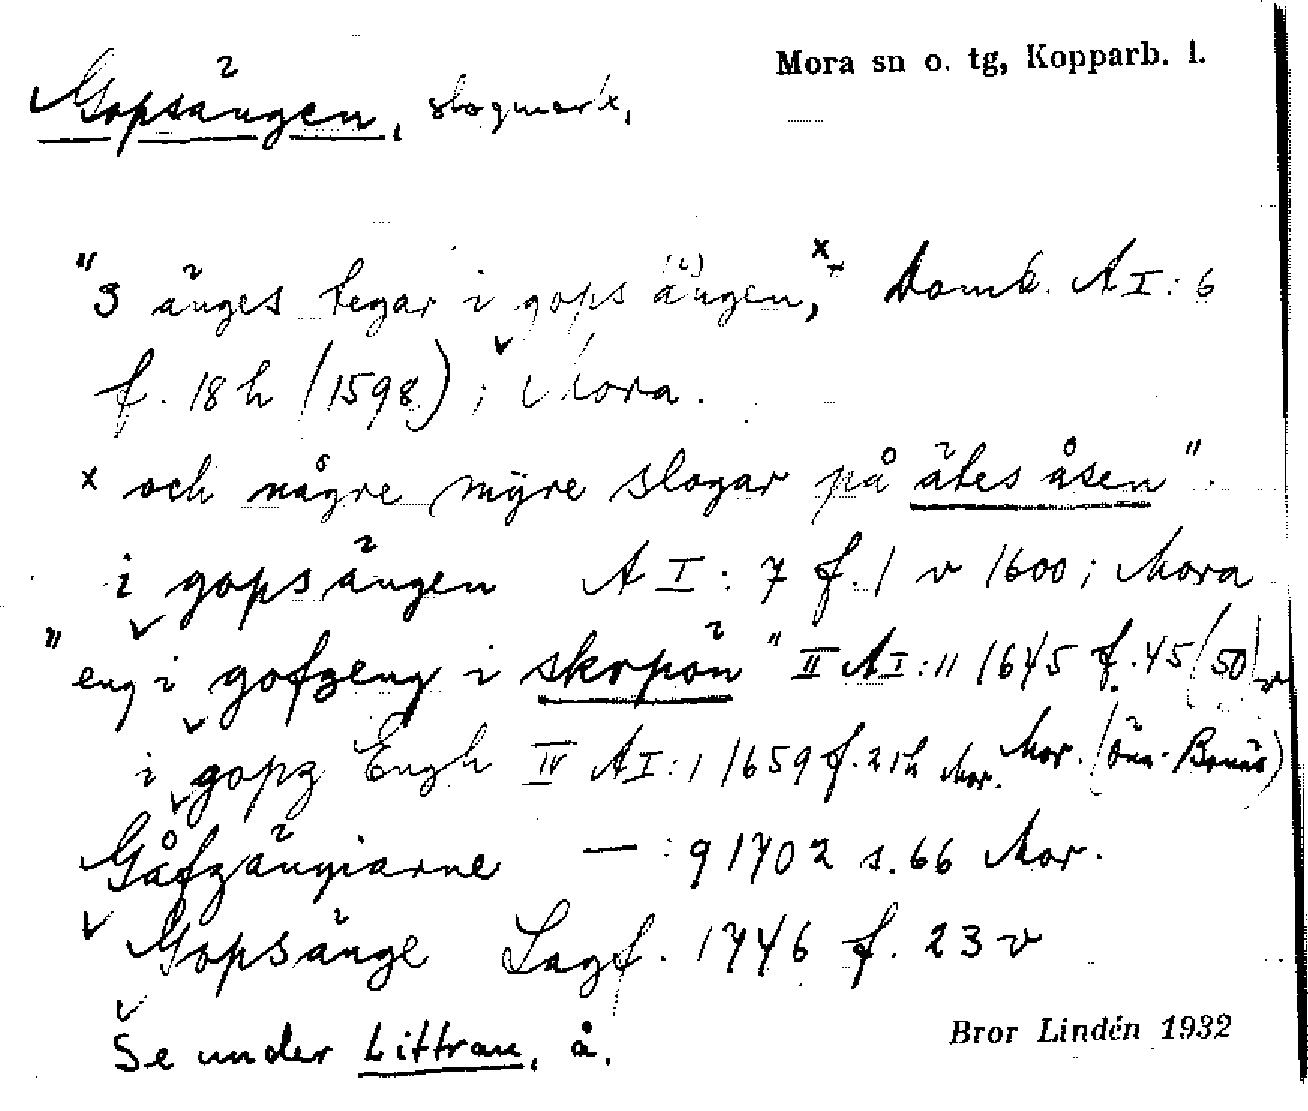 Mora sn o. tg, Kopparb. l.
Gopsängen, slogmark,
"3 änges tegar i gops ängen,ˣ Domb. A I: 6
f. 18 h (1598); Mora.
x och någre myre slogar på ätes åsen".
i gopsängen A I: 7 f. 1 v 1600; Mora
"eng i gofzeng i skrpön" II A I: 11 1645 f. 45 (50) v
i gopz Engh IV A I: 1 1659 f. 21 h Mor. Mor. (Öna-Bonäs)
Gåfzängiarne — : 9 1702 s. 66 Mor.
Gopsänge Lagf. 1746 f. 23 v
Se under Littran, å.
Bror Lindén 1932